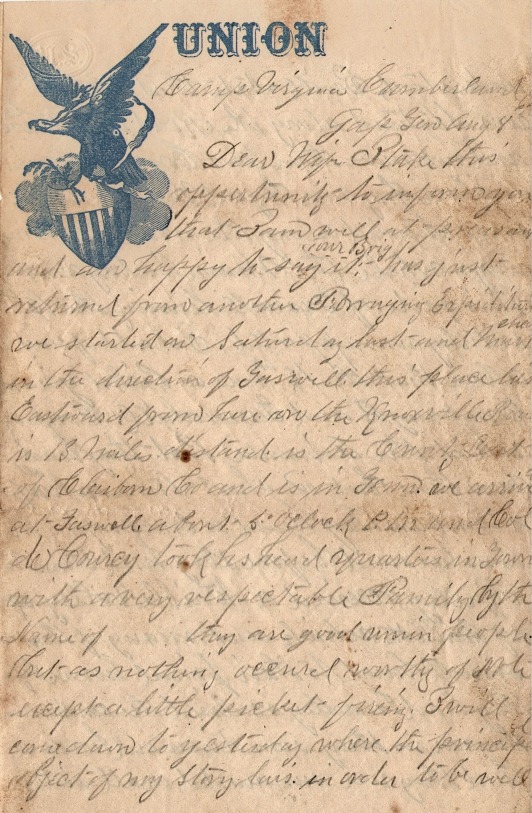 UNION
Camp Virginia Cumberland
Gap Tenn Aug 8
Dear Wife I take this
oppertunity to inform you
that I am well at preasant
our Brig
and am happy to say it. has just
returned from another Forraging Expidition
we started on Saturday last and
in the direction of Taswell this place lies
Eastward from here on the Knoxville
is 13 miles distand is the County Seat
of Claiborn Co and is in Tenn. we arrived
at Taswell about 5 Oclock P.M and Col
de Courcy took his head quarters in Town
with a very respectable Family by the
Name of they are good union people
but as nothing occured worthy of Note
except a little picket firing. I will
come down to yesterday where the principle
object of my story lies. in order to be well